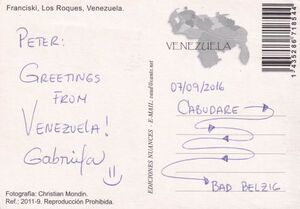 Franciski, Los Roques, Venezuela.
PETER:
GREETINGS
FROM
VENEZUELA!
Gabriela
Fotografía: Christian Mondin.
Ref.: 2011-9. Reproducción Prohibida.
EDICIONES NUANCES - E-MAIL:
VENEZUELA
07/09/2016
CABUDARE
BAD BELZIG